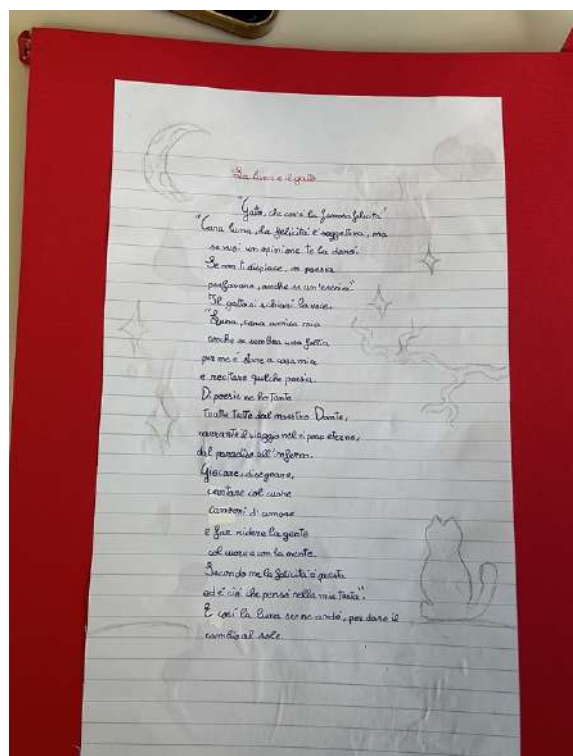 La luna e il gatto
"Gatto, che cos'è la famosa felicità"
"Cara luna, la felicità è soggettiva, ma
se vuoi un opinione te la darò.
Se non ti dispiace, in poesia
perfavore, anche se un'eresia"
Il gatto si schiarì la voce.
"Luna, cara amica mia
anche se sembra una follia
per me è stare a casa mia
e recitare qulche poesia.
Di poesie ne ho tante
tratte tutte dal maestro Dante,
narrante il viaggio nel riposo eterno,
dal paradiso all'inferno.
Giocare, disegnare,
cantare col cuore
canzoni d'amore
e far ridere la gente
col cuore e con la mente.
Secondo me la felicità è questa
ed è ciò che penso nella mia testa".
E così la luna se ne andò, per dare il
cambio al sole.